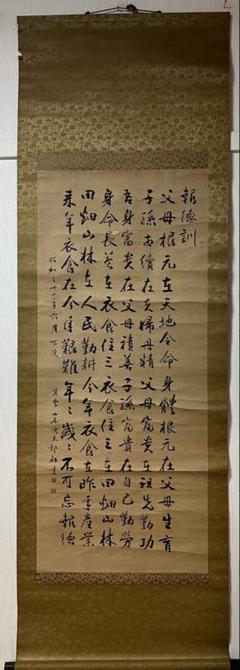 報德訓
父母根元在天地令命身體根元在父母生育
子孫相續在夫婦丹精父母富貴在祖先勤功
吾身富貴在父母積善子孫富貴在自己勤労
身命長養在衣食住三衣食住三在田畑山林
田畑山林在人民勤耕今年衣食在昨年産業
来年衣食在今年艱難年々歳々不可忘報德
昭和 十一年六月